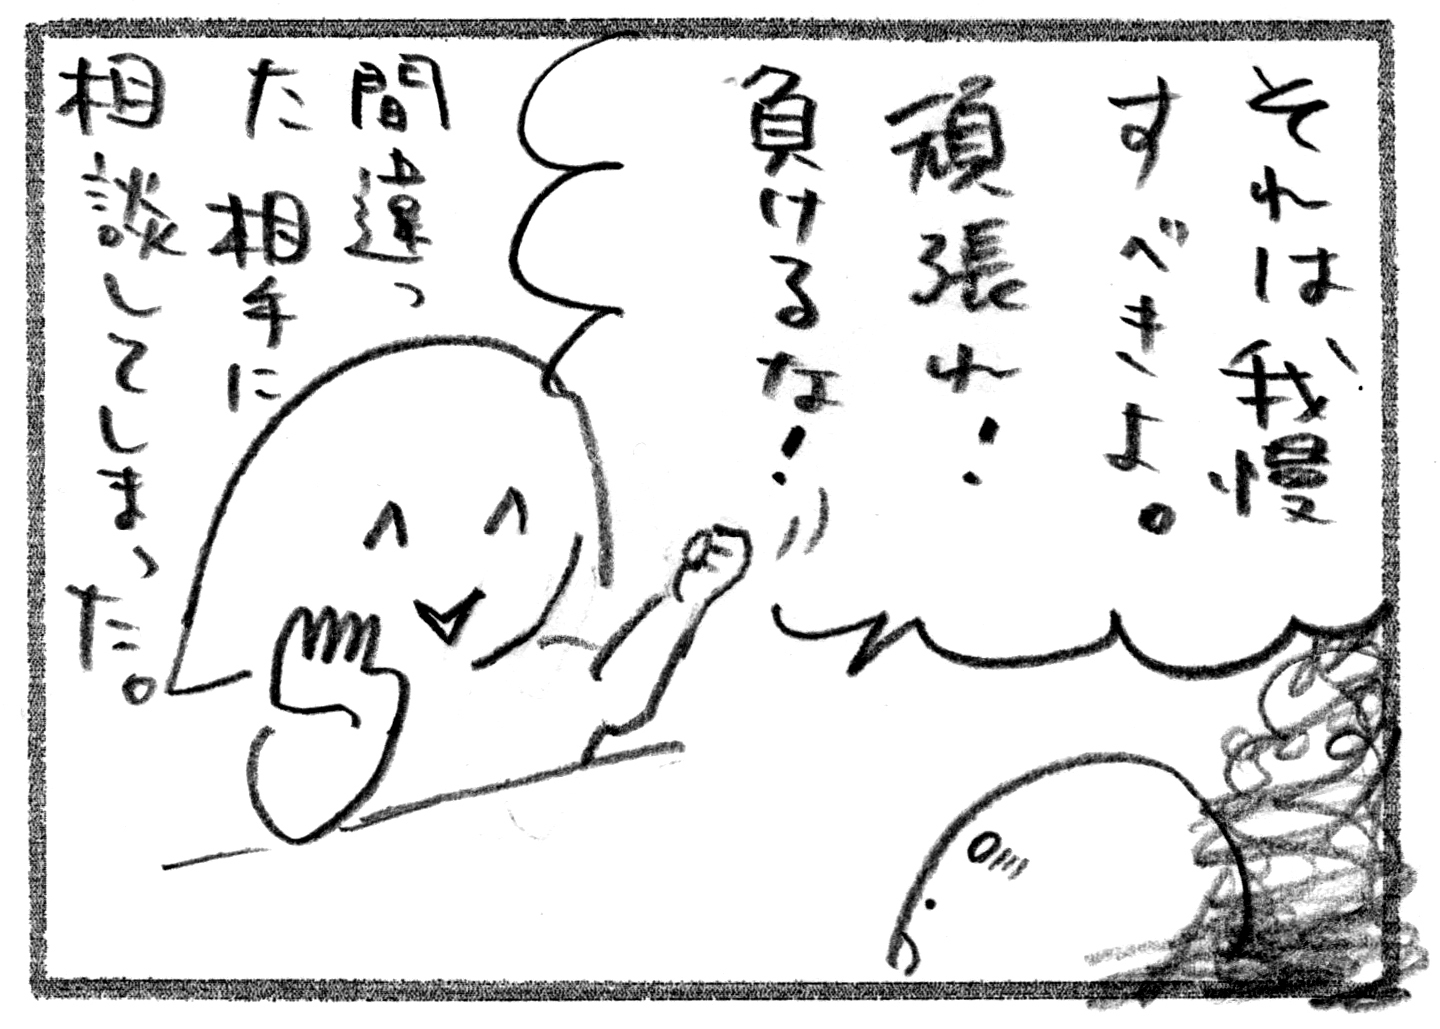 それは、我慢
すべきよ。
頑張れ!
負けるな!
間違っ
た相手に
相談してしまった。